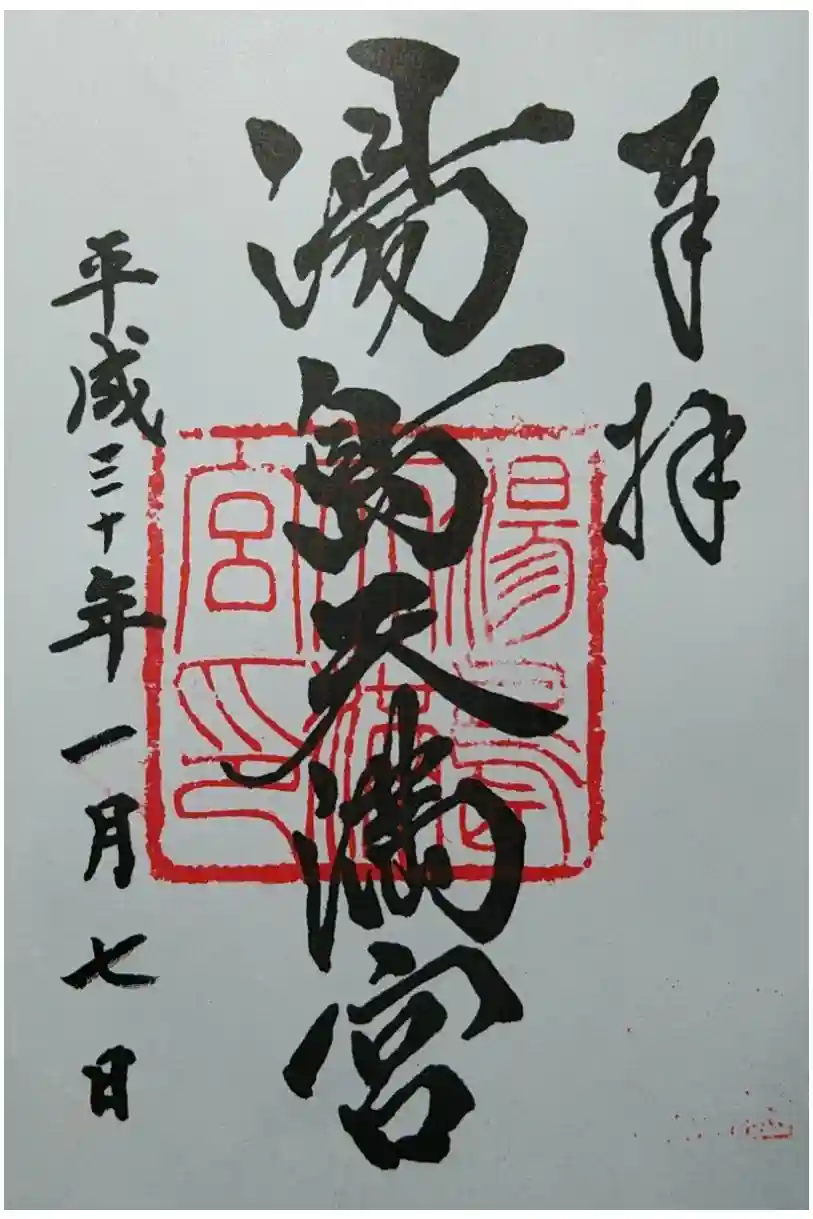 奉拝
湯島天満宮
湯島天満宮印
平成三十年一月七日